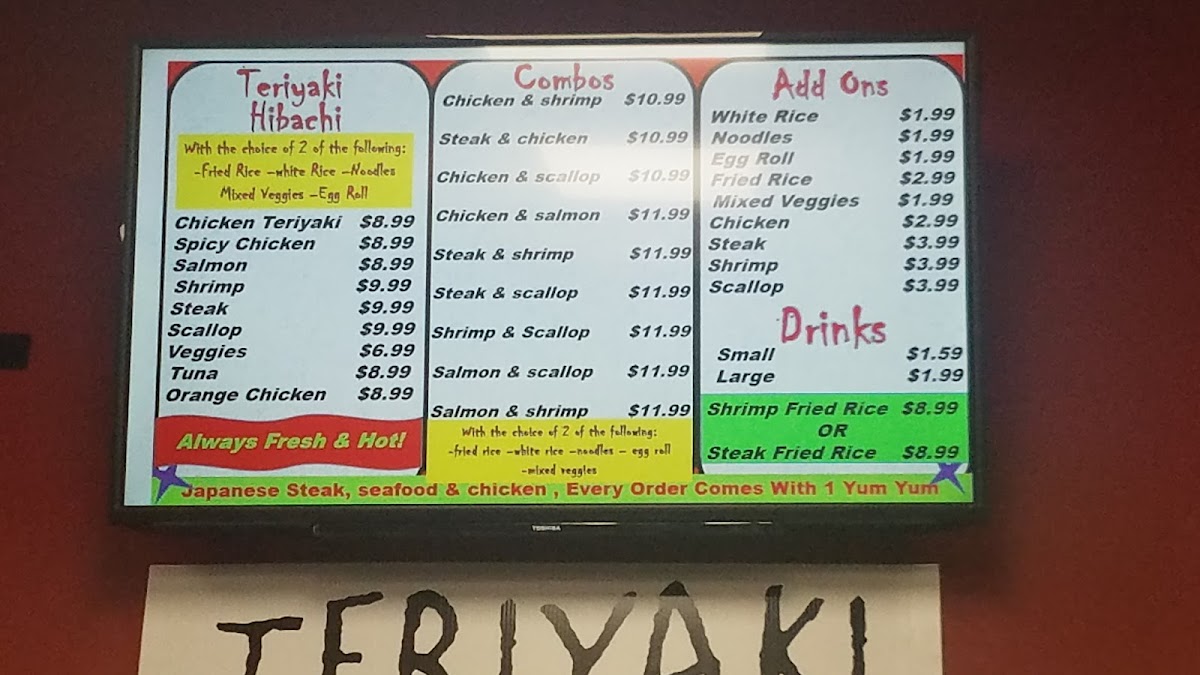 Teriyaki
Hibachi
With the choice of 2 of the following:
-Fried Rice -white Rice -Noodles
Mixed Veggies -Egg Roll
Chicken Teriyaki $8.99
Spicy Chicken $8.99
Salmon $8.99
Shrimp $9.99
Steak $9.99
Scallop $9.99
Veggies $6.99
Tuna $8.99
Orange Chicken $8.99
Always Fresh & Hot!
Combos
Chicken & shrimp $10.99
Steak & chicken $10.99
Chicken & scallop $10.99
Chicken & salmon $11.99
Steak & shrimp $11.99
Steak & scallop $11.99
Shrimp & Scallop $11.99
Salmon & scallop $11.99
Salmon & shrimp $11.99
With the choice of 2 of the following:
-fried rice -white rice -noodles - egg roll
-mixed veggies
Add Ons
White Rice $1.99
Noodles $1.99
Egg Roll $1.99
Fried Rice $2.99
Mixed Veggies $1.99
Chicken $2.99
Steak $3.99
Shrimp $3.99
Scallop $3.99
Drinks
Small $1.59
Large $1.99
Shrimp Fried Rice $8.99
OR
Steak Fried Rice $8.99
Japanese Steak, seafood & chicken , Every Order Comes With 1 Yum Yum
TOSHIBA
TERIYAKI